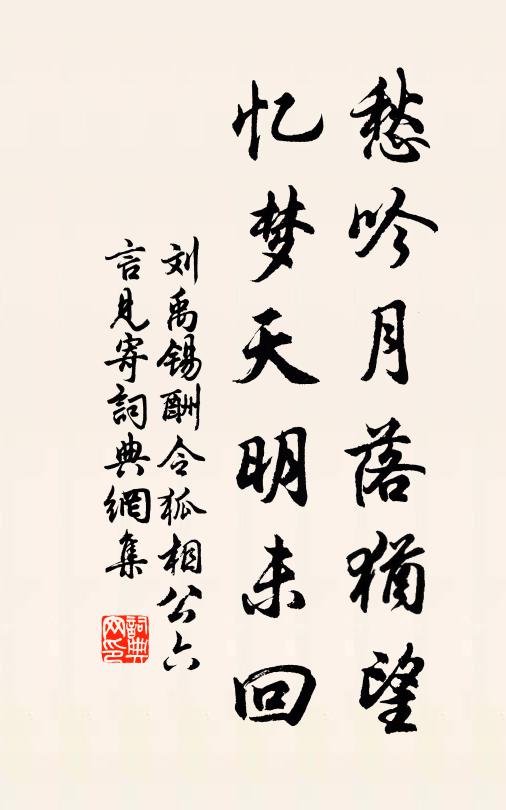 愁吟月落犹望
忆梦天明未回
刘禹锡酬令狐相公六
言见寄词典網集
詞典
网印